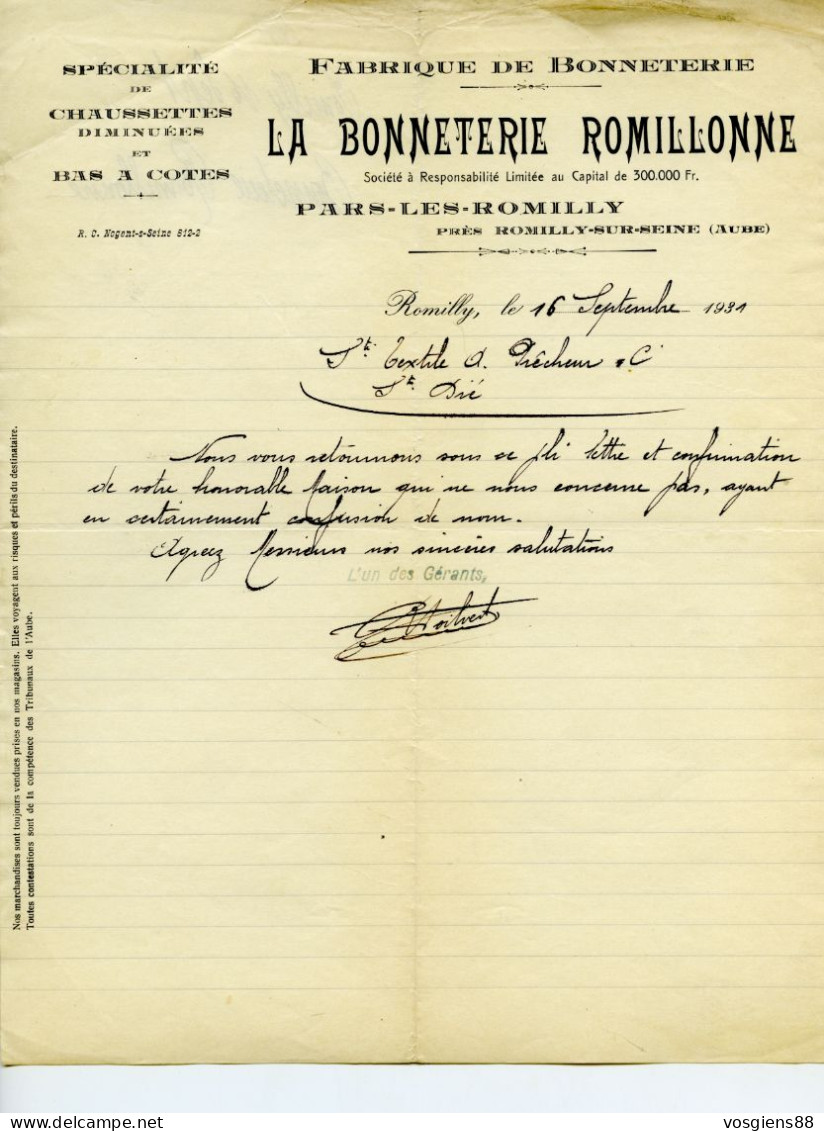 SPÉCIALITÉ
DE
CHAUSSETTES
DIMINUÉES
ET
BAS A COTES
R. C. Nogent-s-Seine 612-2
FABRIQUE DE BONNETERIE
LA BONNETERIE ROMILLONNE
Société à Responsabilité Limitée au Capital de 300.000 Fr.
PARS-LES-ROMILLY
PRÈS ROMILLY-SUR-SEINE (AUBE)
Romilly, le 16 Septembre 1931
Sté Textile A. Pêcheur & Cie
St Dié
Nous vous retournons sous ce pli lettre et confirmation
de votre honorable maison qui ne nous concerne pas, ayant
eu certainement confusion de nom.
Agréez Messieurs nos sincères salutations
L'un des Gérants,
Nos marchandises sont toujours vendues prises en nos magasins. Elles voyagent aux risques et périls du destinataire.
Toutes contestations sont de la compétence des Tribunaux de l'Aube.
vosgiens88